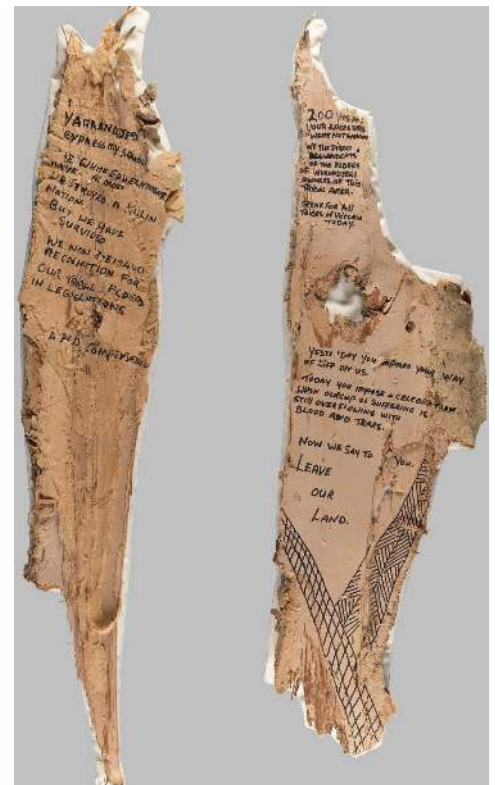 I
YARRANDJERI
EXPRESS MY SORROW
HAVE ALMOST
DESTROYED A KULIN
NATION.
BUT WE HAVE
SURVIVED
WE NOW DEMAND
RECOGNITION FOR
OUR TRIBAL ELDERS
IN LEGISLATIONS
AND COMPENSATION
200 YEARS
YOUR ANCESTORS
WERE NOT
WE THE DIRECT
DESCENDENTS
OF THE ELDERS
OF WURANDJERI
OWNERS OF THIS
TRIBAL AREA.
SPEAK FOR ALL
TRIBES OF VICTORIA
TODAY.
YESTERDAY YOU IMPOSED YOUR WAY
OF LIFE ON US.
TODAY YOU IMPOSE A CELEBRATION
WHEN OUR CUP OF SUFFERING IS
STILL OVERFLOWING WITH
BLOOD AND TEARS.
NOW WE SAY TO YOU.
LEAVE
OUR
LAND.